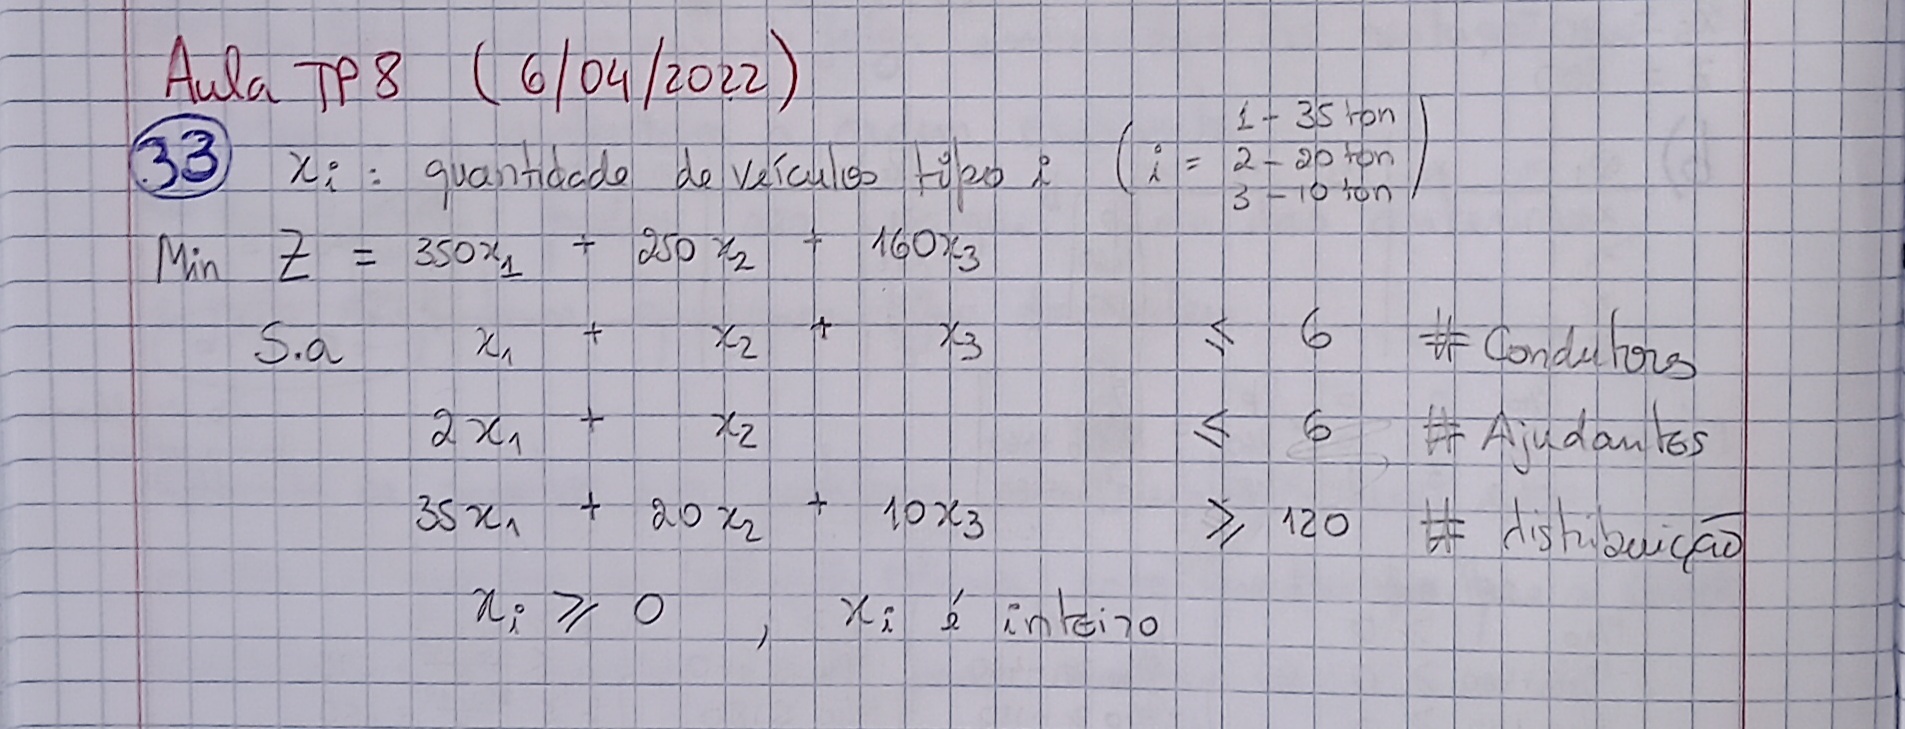 Aula TP8 (6/04/2022)
33 xi : quantidade de veículos tipo i (i = 1 - 35 ton
2 - 20 ton
3 - 10 ton)
Min Z = 350x1 + 250x2 + 160x3
S.a x1 + x2 + x3 ≤ 6 # Condutores
2x1 + x2 ≤ 6 # Ajudantes
35x1 + 20x2 + 10x3 ≥ 120 # distribuição
xi ≥ 0 , xi é inteiro